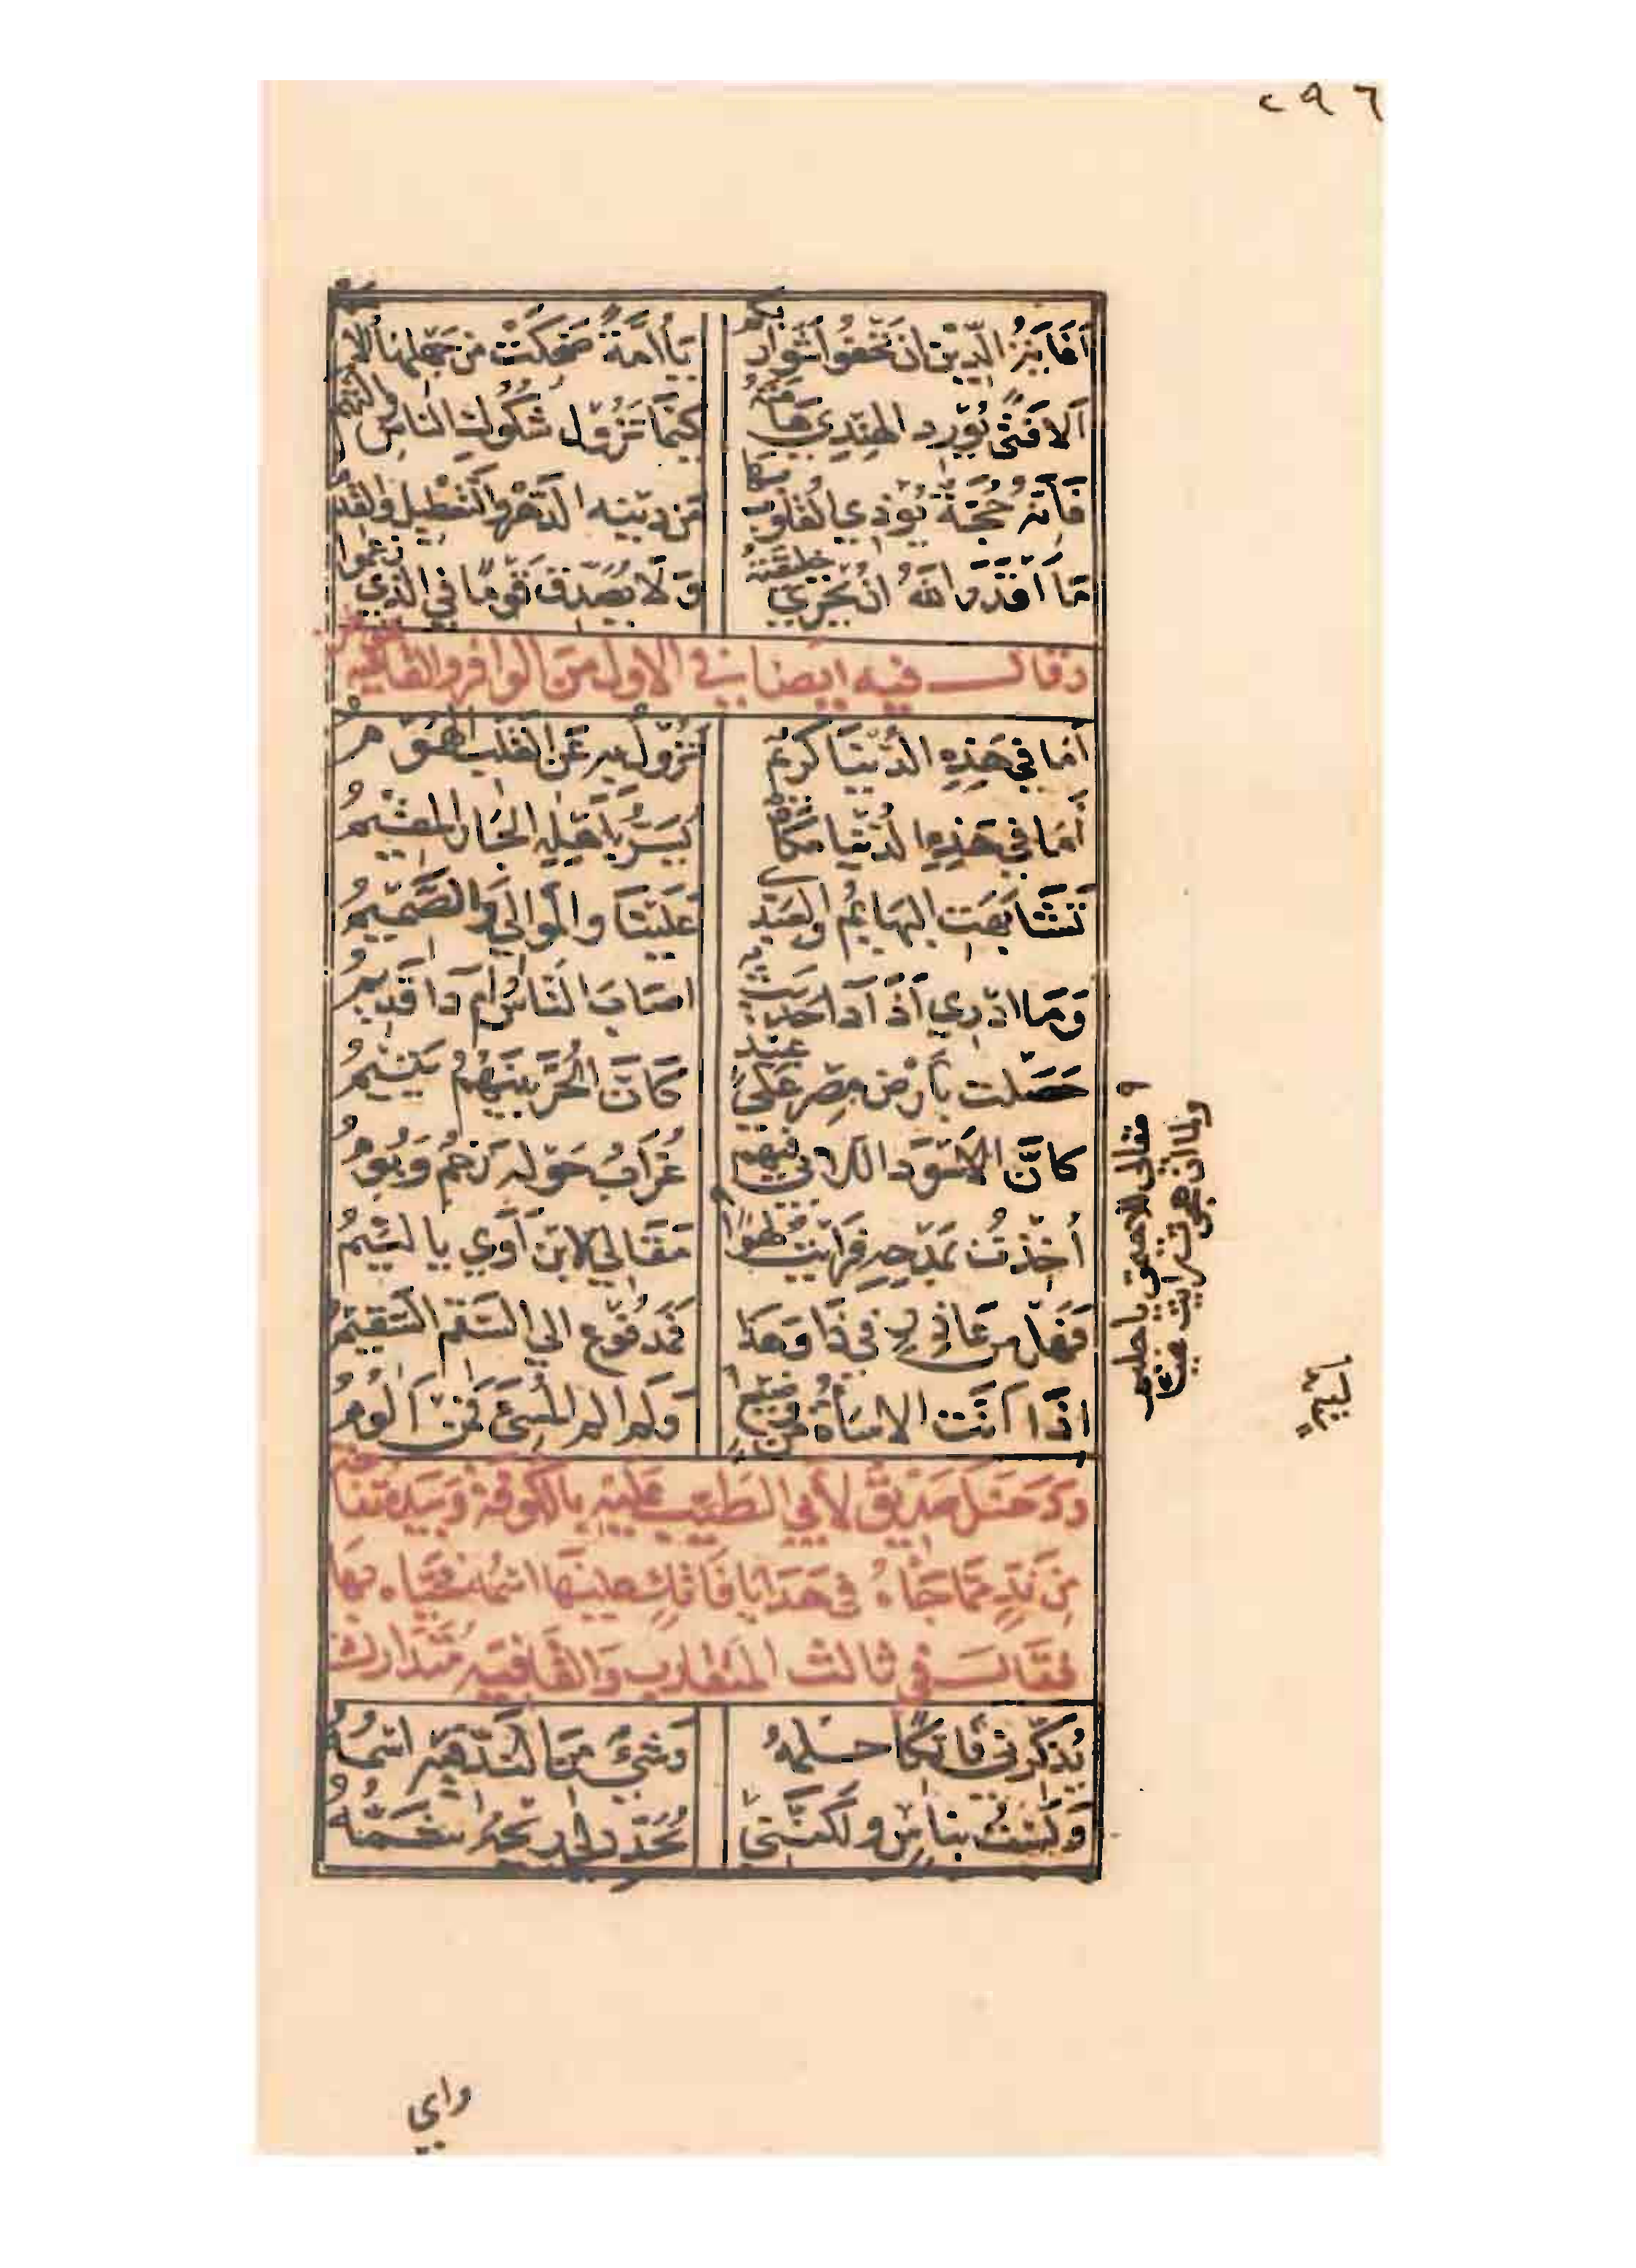 ٢٩٦
اغاية الدين ان تحفوا شواربكم يا امة ضحكت من جهلها الامم
الا فتى يورد الهندي هامته كيما تزول شكوك الناس والتهم
فانه حجة يؤذي القلوب بها من دينه الدهر والتعطيل والقدم
ما اقدر الله ان يخزي خليقته ولا يصدق قوما في الذي زعموا
وقال فيه ايضا في الاول من الوافر والقافية
اما في هذه الدنيا كريم تزول به عن القلب الهموم
اما في هذه الدنيا مكان يسر باهله الجار المقيم
تشابهت البهائم والعبدى علينا والموالي والصميم
وما ادري اذا دا حديث اصاب الناس ام دا قديم
حصلت بارض مصر على عبيد كان الحر بينهم يتيم
كان الاسود اللابي فيهم غراب حوله رخم وبوم
اخذت بمدحه فرايت لهوا مقالي لابن آوي يا لئيم
فهل من عاذر في ذا وهذا فمدفوع الي السقم السقيم
اذا اتت الاساة من وضيع ولم الم المسئ فمن الوم
ودخل صديق لأبي الطيب عليه بالكوفة وبيده تفاحة
من ند مما جاه في هدايا فاتك عليها اسمه فحياه بها
فقال في ثالث المتقارب والقافيه متدارك
يذكرني فاتكا حلمه وشئ من الند فيه اسمه
ولست بناس ولكنني يجدد لي ريحه شمه
مقالي للاحيمق يا حليم
ولما ان هجوت رايت عيا
واي